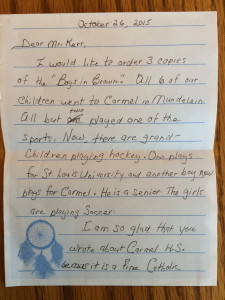 October 26, 2015
Dear Mr. Karr,
I would like to order 3 copies
of the "Boys in Brown." All 6 of our
children went to Carmel in Mundelein.
All but two played one of the
sports. Now, there are grand-
children playing hockey. One plays
for St. Louis University and another boy now
plays for Carmel. He is a senior. The girls
are playing Soccer
I am so glad that you
wrote about Carmel H.S.
because it is a fine Catholic